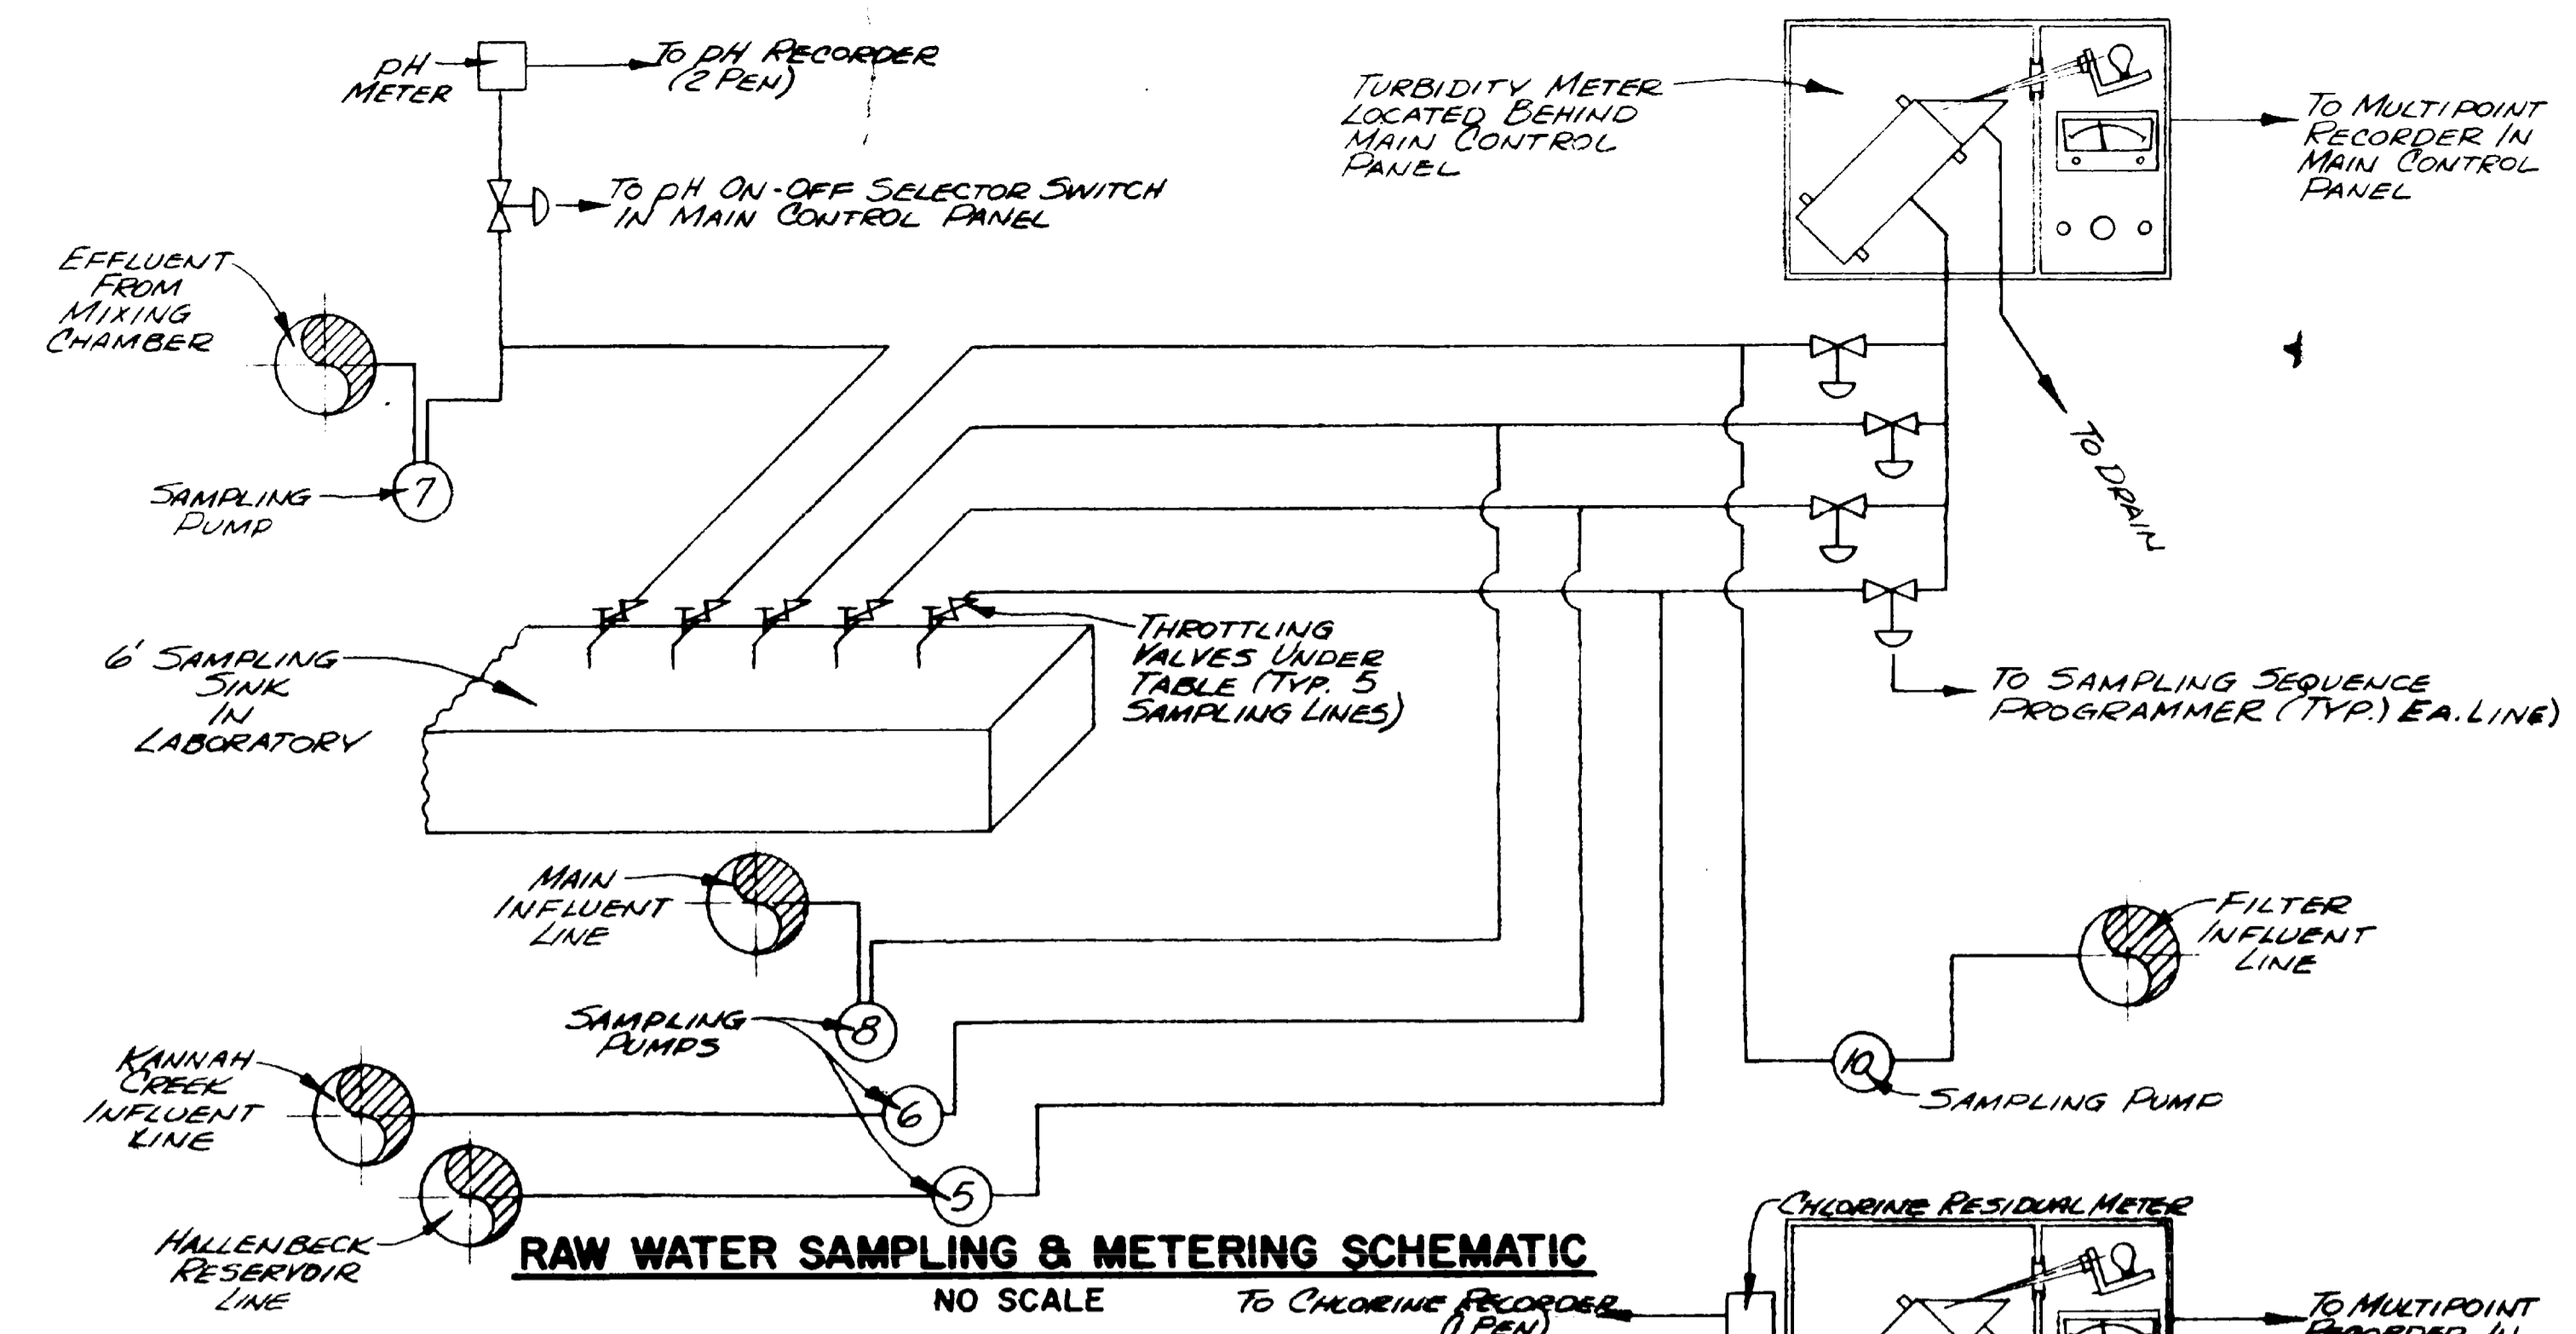 pH
METER
To pH RECORDER
(2 PEN)
To pH ON-OFF SELECTOR SWITCH
IN MAIN CONTROL PANEL
EFFLUENT
FROM
MIXING
CHAMBER
SAMPLING
PUMP
7
TURBIDITY METER
LOCATED BEHIND
MAIN CONTROL
PANEL
To MULTIPOINT
RECORDER IN
MAIN CONTROL
PANEL
TO DRAIN
6' SAMPLING
SINK
IN
LABORATORY
THROTTLING
VALVES UNDER
TABLE (TYP. 5
SAMPLING LINES)
To SAMPLING SEQUENCE
PROGRAMMER (TYP.) EA. LINE)
MAIN
INFLUENT
LINE
SAMPLING
PUMPS
8
6
5
KANNAH
CREEK
INFLUENT
LINE
HALLENBECK
RESERVOIR
LINE
FILTER
INFLUENT
LINE
10
SAMPLING PUMP
RAW WATER SAMPLING & METERING SCHEMATIC
NO SCALE
CHLORINE RESIDUAL METER
To CHLORINE RECORDER
(1 PEN)
To MULTIPOINT
RECORDER IN